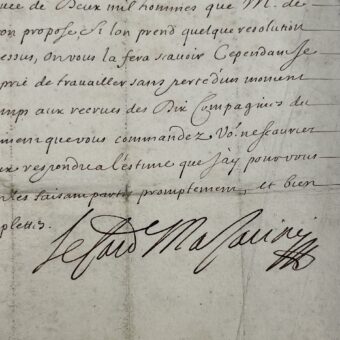 uée de Deux mil hommes que M. de
on propose Si lon prend quelque resolution
essus, on vous la fera scauoir Cependant Je
prié de travailler sans perte dun moment
mps aux recrues des Dix Compagnies du
ment que vous commandez Vo. ne scauriez
ux respondre a l'estime que j'ay pour vous
les faisant partir promptement, et bien
plettes.
Le Card.ᵉ Mazarini